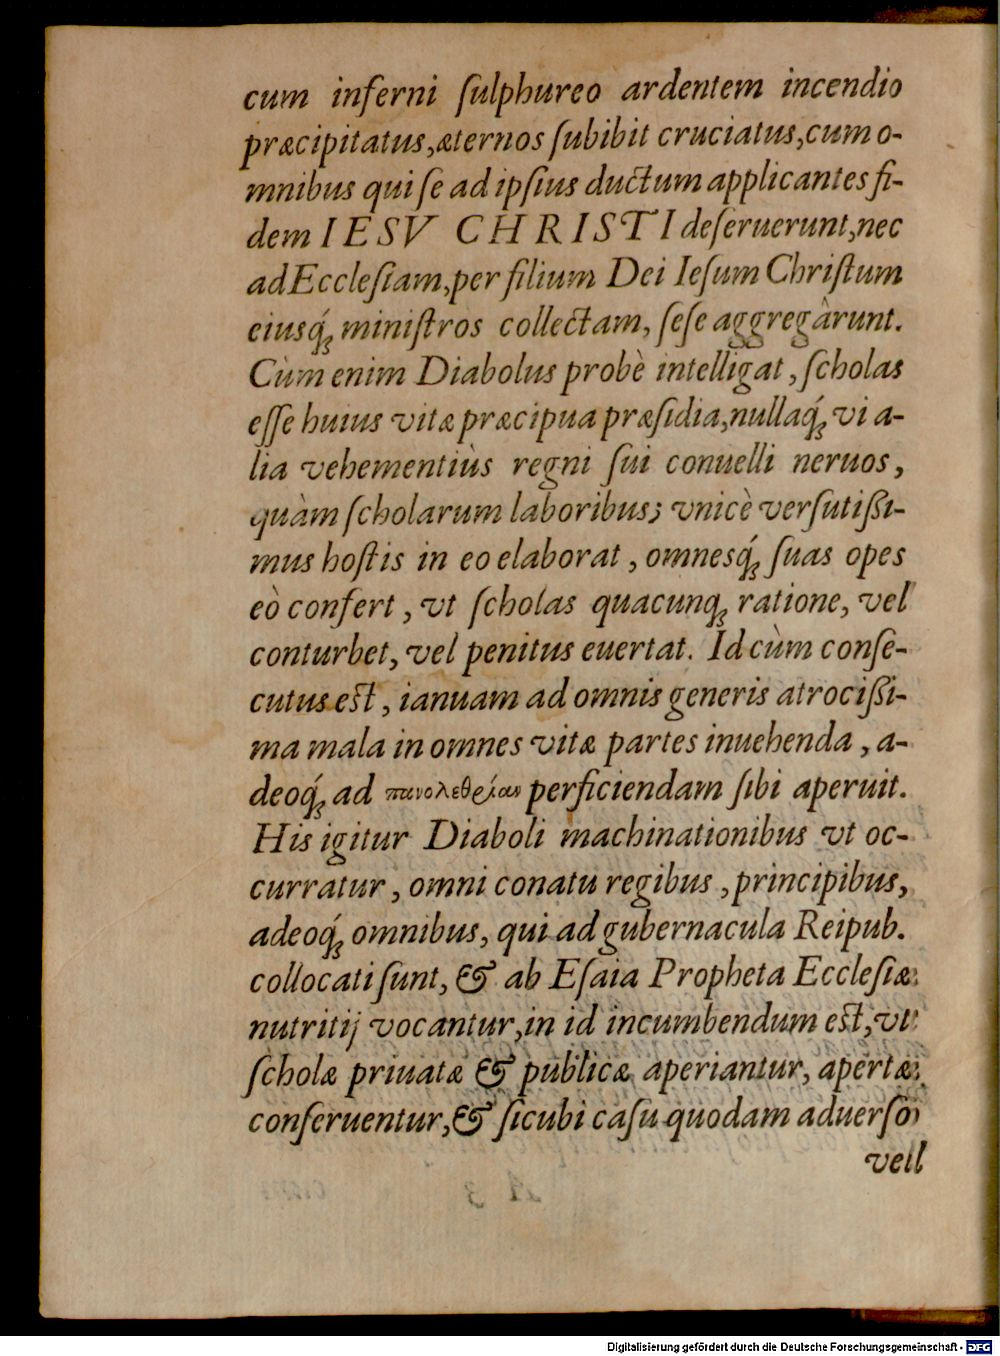 cum inferni ſulphureo ardentem incendio
præcipitatus,æternos ſubibit cruciatus,cum o-
mnibus qui ſe ad ipſius ductum applicantes fi-
dem IESV CHRISTI deſeruerunt,nec
ad Eccleſiam,per filium Dei Ieſum Chriſtum
eiusq́ꝫ miniſtros collectam, ſeſe aggregàrunt.
Cùm enim Diabolus probè intelligat, ſcholas
eſſe huius vitæ præcipua præſidia,nullaq́ꝫ vi a-
lia vehementiùs regni ſui conuelli neruos,
quàm ſcholarum laboribus; vnicè verſutißi-
mus hoſtis in eo elaborat, omnesq́ꝫ ſuas opes
eò confert, vt ſcholas quacunqꝫ ratione, vel
conturbet, vel penitus euertat. Id cùm conſe-
cutus eſt, ianuam ad omnis generis atrocißi-
ma mala in omnes vitæ partes inuehenda, a-
deoq́ꝫ ad πανολεθρίαν perficiendam ſibi aperuit.
His igitur Diaboli machinationibus vt oc-
curratur, omni conatu regibus, principibus,
adeoq́ꝫ omnibus, qui ad gubernacula Reipub.
collocati ſunt, & ab Eſaia Propheta Eccleſiæ
nutritij vocantur,in id incumbendum eſt,vt
ſcholæ priuatæ & publicæ aperiantur, apertæ
conſeruentur,& ſicubi caſu quodam aduerſo
vell
Digitalisierung gefördert durch die Deutsche Forschungsgemeinschaft - DFG